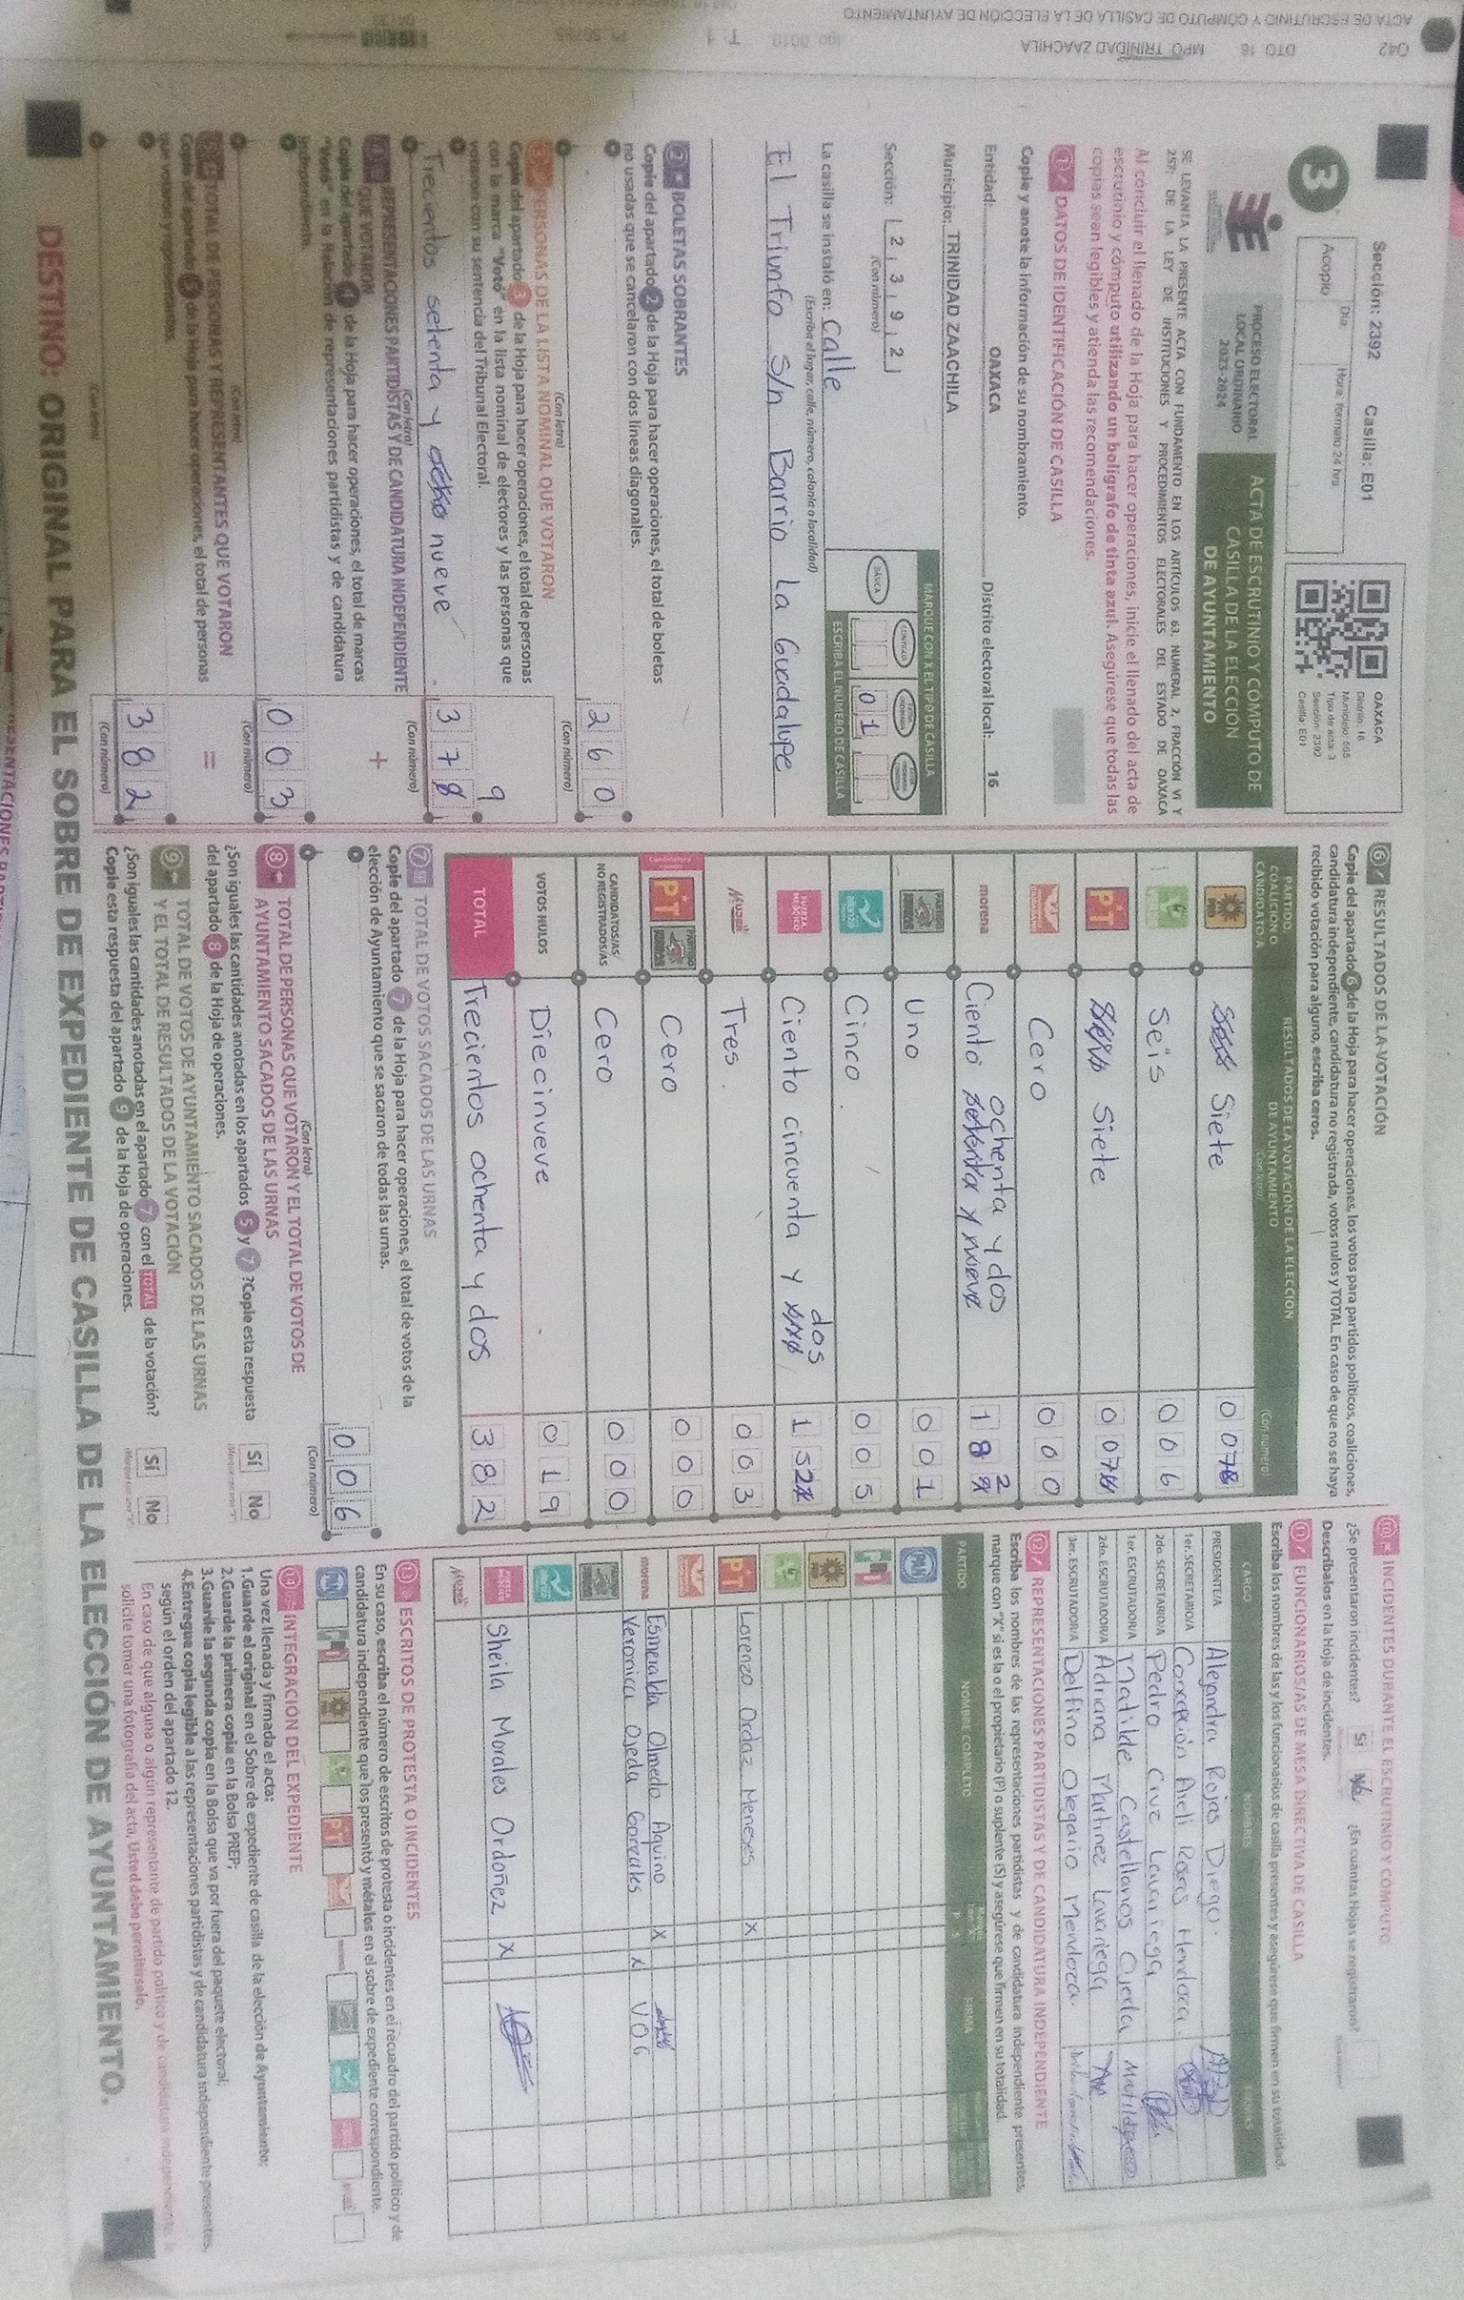 Q42 DTO: 16 MPO: TRINIDAD ZAACHILA
ACTA DE ESCRUTINIO Y CÓMPUTO DE CASILLA DE LA ELECCIÓN DE AYUNTAMIENTO
Sección: 2392 Casilla: E01
Día: Hora: Formato 24 hrs
Acopio
3
OAXACA
Distrito: 16
Municipio: 565
Tipo de acta: 3
Sección: 2392
Casilla: E01
PROCESO ELECTORAL
LOCAL ORDINARIO
2023-2024
ACTA DE ESCRUTINIO Y CÓMPUTO DE
CASILLA DE LA ELECCIÓN
DE AYUNTAMIENTO
SE LEVANTA LA PRESENTE ACTA CON FUNDAMENTO EN LOS ARTÍCULOS 63, NUMERAL 2, FRACCIÓN VI Y
257; DE LA LEY DE INSTITUCIONES Y PROCEDIMIENTOS ELECTORALES DEL ESTADO DE OAXACA
Al concluir el llenado de la Hoja para hacer operaciones, inicie el llenado del acta de
escrutinio y cómputo utilizando un bolígrafo de tinta azul. Asegúrese que todas las
copias sean legibles y atienda las recomendaciones.
1 DATOS DE IDENTIFICACIÓN DE CASILLA
Copie y anote la información de su nombramiento.
Entidad: OAXACA Distrito electoral local: 16
Municipio: TRINIDAD ZAACHILA
Sección: 2 3 9 2
(Con número)
MARQUE CON X EL TIPO DE CASILLA
BÁSICA
0 1
ESCRIBA EL NÚMERO DE CASILLA
La casilla se instaló en: Calle
(Escriba el lugar, calle, número, colonia o localidad)
El Triunfo S/n Barrio la Guadalupe
2 BOLETAS SOBRANTES
Copie del apartado 2 de la Hoja para hacer operaciones, el total de boletas
no usadas que se cancelaron con dos líneas diagonales.
2 6 0
(Con letra) (Con número)
3 PERSONAS DE LA LISTA NOMINAL QUE VOTARON
Copie del apartado 3 de la Hoja para hacer operaciones, el total de personas
con la marca "Votó" en la lista nominal de electores y las personas que
votaron con su sentencia del Tribunal Electoral.
Trecientos setenta y ocho nueve 3 7 8 9
(Con letra) (Con número)
4 REPRESENTACIONES PARTIDISTAS Y DE CANDIDATURA INDEPENDIENTE
QUE VOTARON +
Copie del apartado 4 de la Hoja para hacer operaciones, el total de marcas
"Votó" en la Relación de representaciones partidistas y de candidatura
independiente.
0 0 3
(Con letra) (Con número)
5 TOTAL DE PERSONAS Y REPRESENTANTES QUE VOTARON =
Copie del apartado 5 de la Hoja para hacer operaciones, el total de personas
que votaron y representantes.
3 8 2
(Con letra) (Con número)
6 RESULTADOS DE LA VOTACIÓN
Copie del apartado 6 de la Hoja para hacer operaciones, los votos para partidos políticos, coaliciones,
candidatura independiente, candidatura no registrada, votos nulos y TOTAL. En caso de que no se haya
recibido votación para alguno, escriba ceros.
PARTIDO,
COALICIÓN O
CANDIDATO/A
RESULTADOS DE LA VOTACIÓN DE LA ELECCIÓN
DE AYUNTAMIENTO
(Con letra) (Con número)
PRD Siete 0 0 7
Seis 0 0 6
PT Siete 0 0 7
Cero 0 0 0
morena Ciento ochenta y dos 1 8 2
Uno 0 0 1
Cinco 0 0 5
FUERZA MÉXICO Ciento cincuenta y dos 1 5 2
Mujer Tres 0 0 3
PT Cero 0 0 0
CANDIDATOS/AS
NO REGISTRADOS/AS Cero 0 0 0
VOTOS NULOS Diecinveve 0 1 9
TOTAL Trecientos ochenta y dos 3 8 2
7 TOTAL DE VOTOS SACADOS DE LAS URNAS
Copie del apartado 7 de la Hoja para hacer operaciones, el total de votos de la
elección de Ayuntamiento que se sacaron de todas las urnas.
0 0 6
(Con letra) (Con número)
8 TOTAL DE PERSONAS QUE VOTARON Y EL TOTAL DE VOTOS DE
AYUNTAMIENTO SACADOS DE LAS URNAS
¿Son iguales las cantidades anotadas en los apartados 5 y 7 ?Copie esta respuesta
del apartado 8 de la Hoja de operaciones.
Sí No
9 TOTAL DE VOTOS DE AYUNTAMIENTO SACADOS DE LAS URNAS
Y EL TOTAL DE RESULTADOS DE LA VOTACIÓN
¿Son iguales las cantidades anotadas en el apartado 7 con el TOTAL de la votación?
Copie esta respuesta del apartado 9 de la Hoja de operaciones.
Sí No
10 INCIDENTES DURANTE EL ESCRUTINIO Y CÓMPUTO
¿Se presentaron incidentes? Sí No ¿En cuántas Hojas se registraron?
Descríbalos en la Hoja de incidentes.
11 FUNCIONARIOS/AS DE MESA DIRECTIVA DE CASILLA
Escriba los nombres de las y los funcionarios de casilla presentes y asegúrese que firmen en su totalidad.
CARGO NOMBRES FIRMAS
PRESIDENTE/A Alejandra Rojas Diego
1er. SECRETARIO/A Concepción Areli Rosas Mendoza
2do. SECRETARIO/A Pedro Cruz Lavariega
1er. ESCRUTADOR/A Matilde Castellanos Ojeda
2do. ESCRUTADOR/A Adriana Martinez Lavariega
3er. ESCRUTADOR/A Delfino Olegario Mendoza
12 REPRESENTACIONES PARTIDISTAS Y DE CANDIDATURA INDEPENDIENTE
Escriba los nombres de las representaciones partidistas y de candidatura independiente presentes,
marque con "X" si es la o el propietario (P) o suplente (S) y asegúrese que firmen en su totalidad.
PARTIDO NOMBRE COMPLETO P S FIRMA
PAN
PRI
PRD
PT Lorenzo Ordaz Meneses X
morena Esmeralda Olmedo Aquino X
Veronica Ojeda Gonzales X VOG
Sheila Morales Ordoñez X
Mujer
13 ESCRITOS DE PROTESTA O INCIDENTES
En su caso, escriba el número de escritos de protesta o incidentes en el recuadro del partido político y de
candidatura independiente que los presentó y métalos en el sobre de expediente correspondiente.
INTEGRACIÓN DEL EXPEDIENTE
Una vez llenada y firmada el acta:
1.Guarde el original en el Sobre de expediente de casilla de la elección de Ayuntamiento;
2.Guarde la primera copia en la Bolsa PREP;
3.Guarde la segunda copia en la Bolsa que va por fuera del paquete electoral;
4.Entregue copia legible a las representaciones partidistas y de candidatura independiente presentes,
según el orden del apartado 12.
En caso de que alguna o algún representante de partido político y de candidatura independiente
solicite tomar una fotografía del acta, Usted debe permitírselo.
DESTINO: ORIGINAL PARA EL SOBRE DE EXPEDIENTE DE CASILLA DE LA ELECCIÓN DE AYUNTAMIENTO.